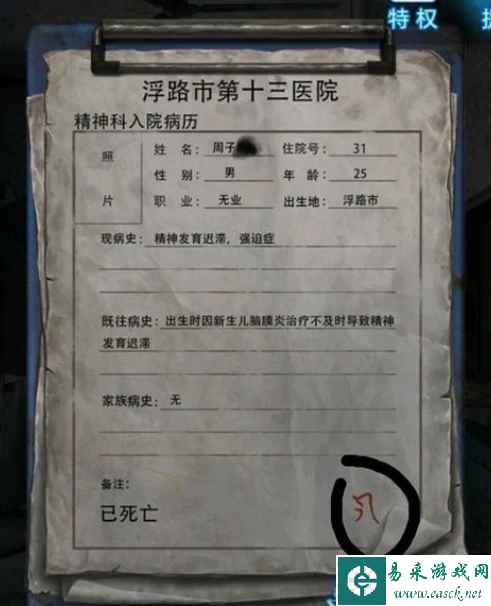 特权
浮路市第十三医院
精神科入院病历
照片
姓 名： 周子 住院号： 31
性 别： 男 年 龄： 25
职 业： 无业 出生地： 浮路市
现病史： 精神发育迟滞，强迫症
既往病史：出生时因新生儿脑膜炎治疗不及时导致精神
发育迟滞
家族病史： 无
备注：
已死亡
易采游戏网
www.easck.net